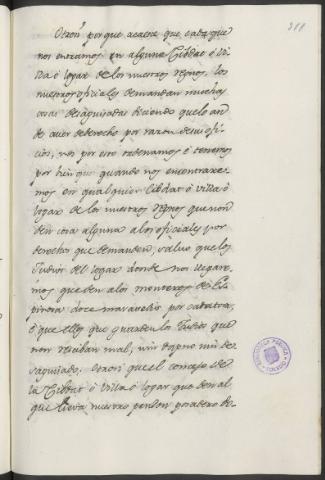 311
Otrosi porque acaece que cada que
nos entramos en alguna Cibdat o Vi-
lla o logar de los nuestros regnos, los
nuestros oficiales demandan muchas
cosas desaguisadas diciendo que lo an
de aver de derecho por razon de sus ofi-
cios, nos por esto ordenamos e tenemos
por bien que quando nos entraremos
en qualquier Cibdat o villa o
logar de los nuestros regnos que non
den cosa alguna a los oficiales por
derechos que demanden, salvo que los
Judios del logar donde nos llegare-
mos que den a los monteros de Es-
pinosa doce maravedis por cada tora,
e que ellos que guarden los Judios que
non reciban mal, nin dapno nin de-
saguisado. Otrosi que el concejo de
la Cibdat o Villa o logar que den al
que lieva nuestro pendon posadero do-
BIBLIOTECA PUBLICA
TOLEDO